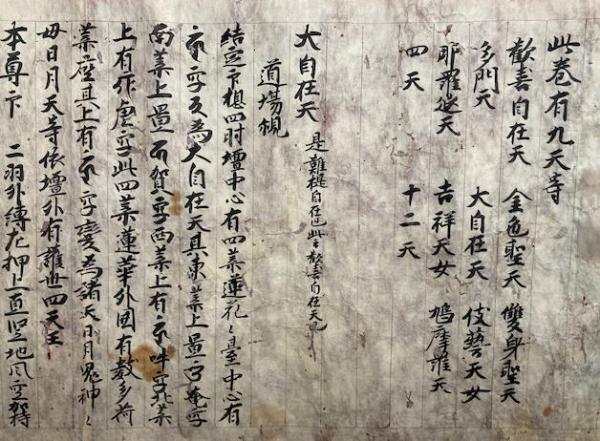 此卷有九天等
歡喜自在天 金色聖天 雙身聖天
多門天 大自在天 伎藝天女
那羅延天 吉祥天女 鳩摩羅天
四天 十二天
大自在天 是難提自在也此云歡喜自在天也
道場觀
結定印想四肘壇中心有四葉蓮花〻臺中心有
字變為大自在天其東葉上置字
南葉上置字西葉上有字北葉
上有字此四葉蓮華外圍有數多荷
葉座其上有字變為諸天日月鬼神〻
毋日月天等依壇外有護世四天王
本尊印 二羽外縛左押上直竪地風空加持